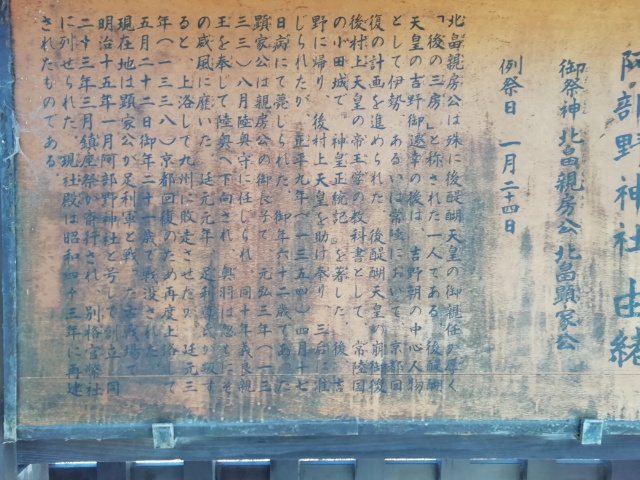 阿部野神社由緒
御祭神 北畠親房公 北畠顕家公
例祭日 一月二十四日
北畠親房公は殊に後醍醐天皇の御親任が厚く
「後の三房」と称された一人である 後醍醐
天皇の吉野御遷幸の後は 吉野朝の中心人物
として伊勢、あるいは常陸において、京都回
復の計画を進められた 後醍醐天皇 崩御後
後村上天皇の帝王学の教科書として、常陸国
の小田城で、神皇正統記』を著した 後 吉
野に帰り、後村上天皇を助け参り、三后に准
じられたが、正平九年(一三五四)四月十七
日病にて薨じられた 御年六十二歳であった
顕家公は親房公の御長子で 元弘三年(一三
三三)八月陸奥守に任じられ 同十年義良親
王を奉じて陸奥へ下向され 奥羽は忽ちにそ
の威風に靡いた 延元元年 足利尊氏が叛す
ると、上洛して九州に敗走させたが 延元三
年(一三三八)京都回復のため再度上洛して
五月二十二日御年二十一歳で戦没された
現在地は顕家公が足利軍と戦った古戦場で
明治十五年一月阿部野神社と号して創立 同
二十三年三月鎮座祭が斎行され 別格官幣社
に列せられた 現社殿は昭和四十三年に再建
されたものである。